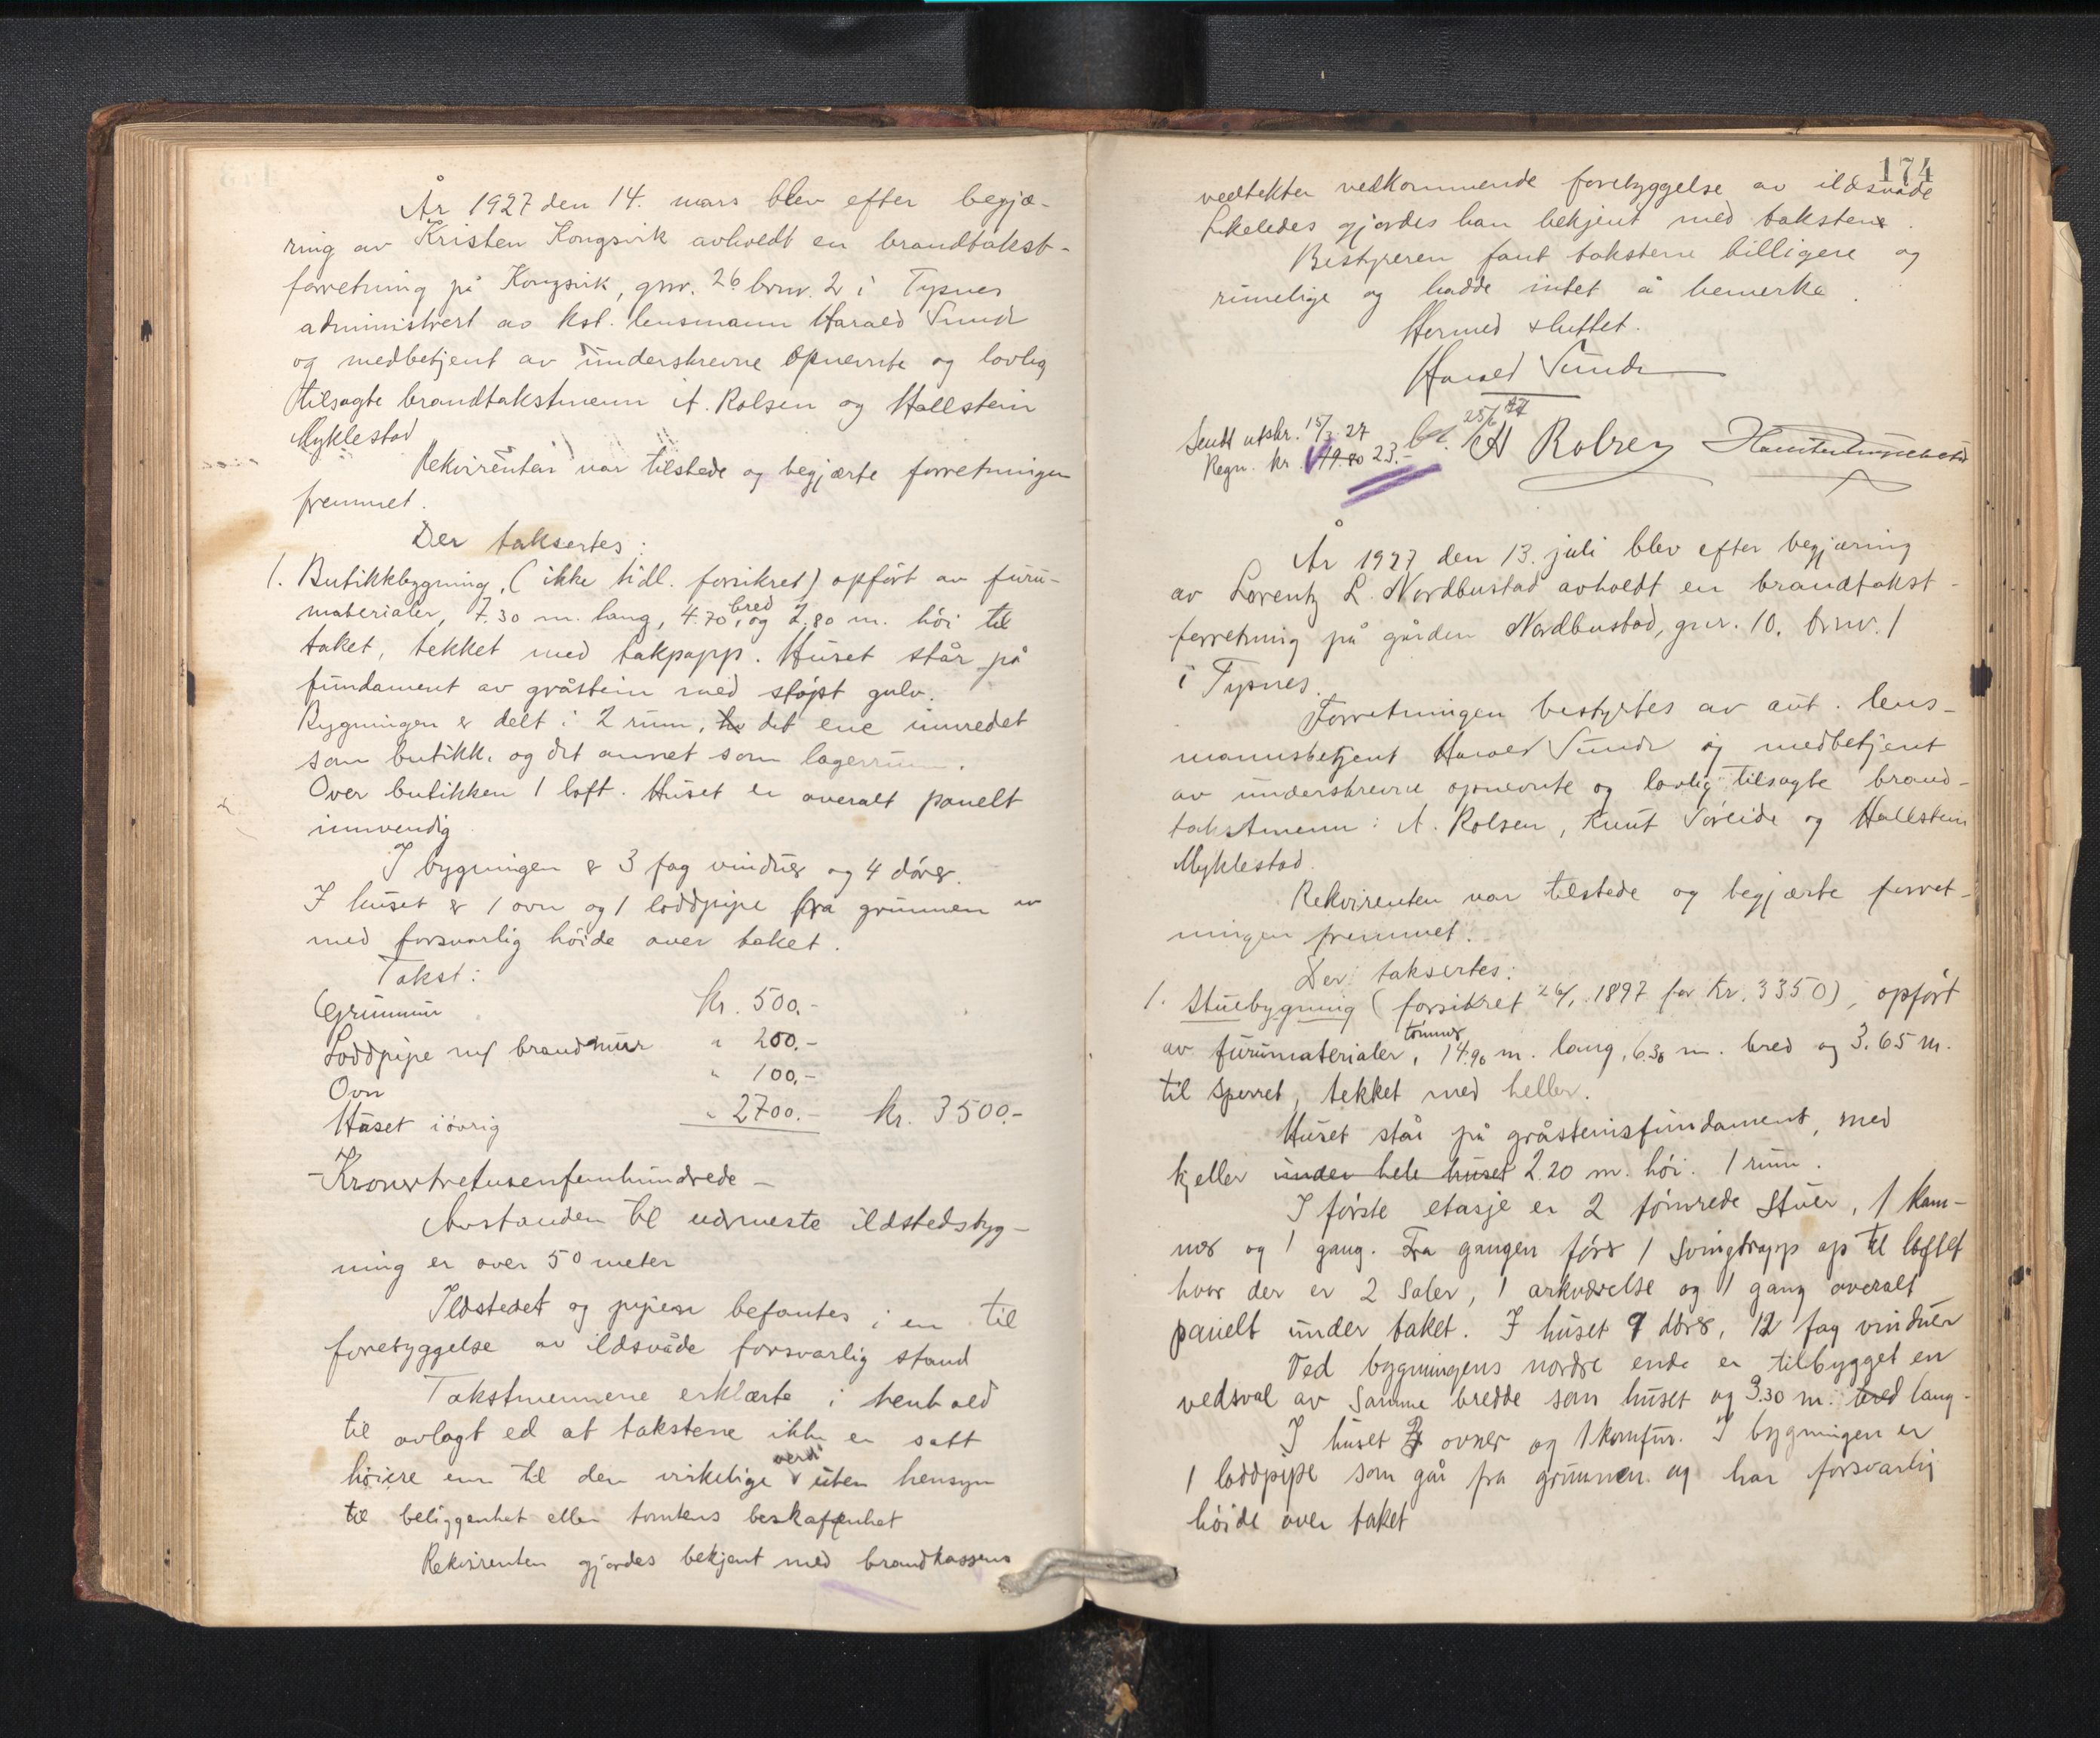 År 1927 den 14. mars blev efter begjæ-
ring av Kristen Kongsvik avholdt en brandtakst-
forretning på Kongsvik, gnr. 26 brnr. 2 i Tysnes
administrert av kst. lensmann Harald Sunde
og medbetjent av underskrevne opnevnte og lovlig
tilsagte brandtakstmenn A. Rolsen og Hallstein
Myklestad
Rekvirenten var tilstede og begjærte forretningen
fremmet.
Der taksertes:
1. Butikkbygning, (ikke tidl. forsikret) opført av furu-
materialer, 7.30 m. lang, 4.70 bred og 2.80 m. høi til
taket, tekket med takpapp. Huset står på
fundament av gråstein med støpt gulv.
Bygningen er delt i 2 rum, det ene innredet
som butikk, og det annet som lagerrum.
Over butikken 1 loft. Huset er overalt panelt
innvendig
I bygningen er 3 fag vinduer og 4 dører.
I huset er 1 ovn og 1 loddpipe fra grunnen av
med forsvarlig høide over taket.
Takst:
Grunnmur kr. 500.-
Loddpipe m/ brandmur " 200.-
Ovn " 100.-
Huset iøvrig " 2700.- kr. 3500.-
- Kronertretusenfemhundrede -
Avstanden til nærmeste ildstedsbyg-
ning er over 50 meter
Ildstedet og pipen befantes i en til
forebyggelse av ildsvåde forsvarlig stand
Takstmennene erklærte i henhold
til avlagt ed at takstene ikke er satt
høiere enn til den virkelige verdi uten hensyn
til beliggenhet eller tomtens beskaffenhet
Rekvirenten gjordes bekjent med brandkassens
174
vedtekter vedkommende forebyggelse av ildsvåde
Likeledes gjordes han bekjent med takstene.
Bestyreren fant takstene billigere og
rimelige og hadde intet å bemerke.
Hermed sluttet.
Harald Sunde
Sendt utskr. 15/3 27 bet. 25/6 27
Regn. kr. 19.80 23.- A Rolsen Hallstein Myklestad
År 1927 den 13. juli blev efter begjæring
av Lorentz L. Nordbustad avholdt en brandtakst-
forretning på gården Nordbustad, gnr. 10, brnr. 1
i Tysnes.
Forretningen bestyrtes av aut. lens-
mannsbetjent Harald Sunde og medbetjent
av underskrevne opnevnte og lovlig tilsagte brand-
takstmenn: A. Rolsen, Knut Søreide og Hallstein
Myklestad.
Rekvirenten var tilstede og begjærte forret-
ningen fremmet.
Der taksertes:
1. Stuebygning (forsikret 26/1. 1897 for kr. 3350), opført
av furumaterialer, tømmer 14.90 m. lang, 6.30 m. bred og 3.65 m.
til sperret, tekket med heller.
Huset står på gråsteinsfundament, med
kjeller under hele huset 2.20 m. høi. 1 rum.
I første etasje er 2 tømrede stuer, 1 kam-
mer og 1 gang. Fra gangen fører 1 svingtrapp op til loftet
hvor der er 2 saler, 1 arkværelse og 1 gang overalt
panelt under taket. I huset 9 dører, 12 fag vinduer
Ved bygningens nordre ende er tilbygget en
vedsval av samme bredde som huset og 3.30 m. bred lang-
I huset 3 ovner og 1 komfur. I bygningen er
1 loddpipe som går fra grunnen og har forsvarlig
høide over taket